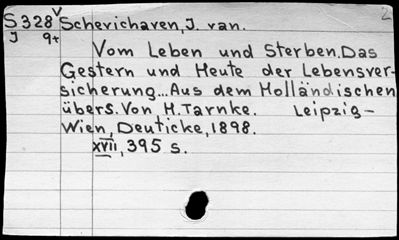 2
S328 v Schevichaven, J. van.
J 9+
Vom Leben und Sterben. Das
Gestern und Heute der Lebensver-
sicherung... Aus dem Holländischen
übers. Von H. Tarnke. Leipzig-
Wien, Deuticke, 1898.
xvii, 395 s.